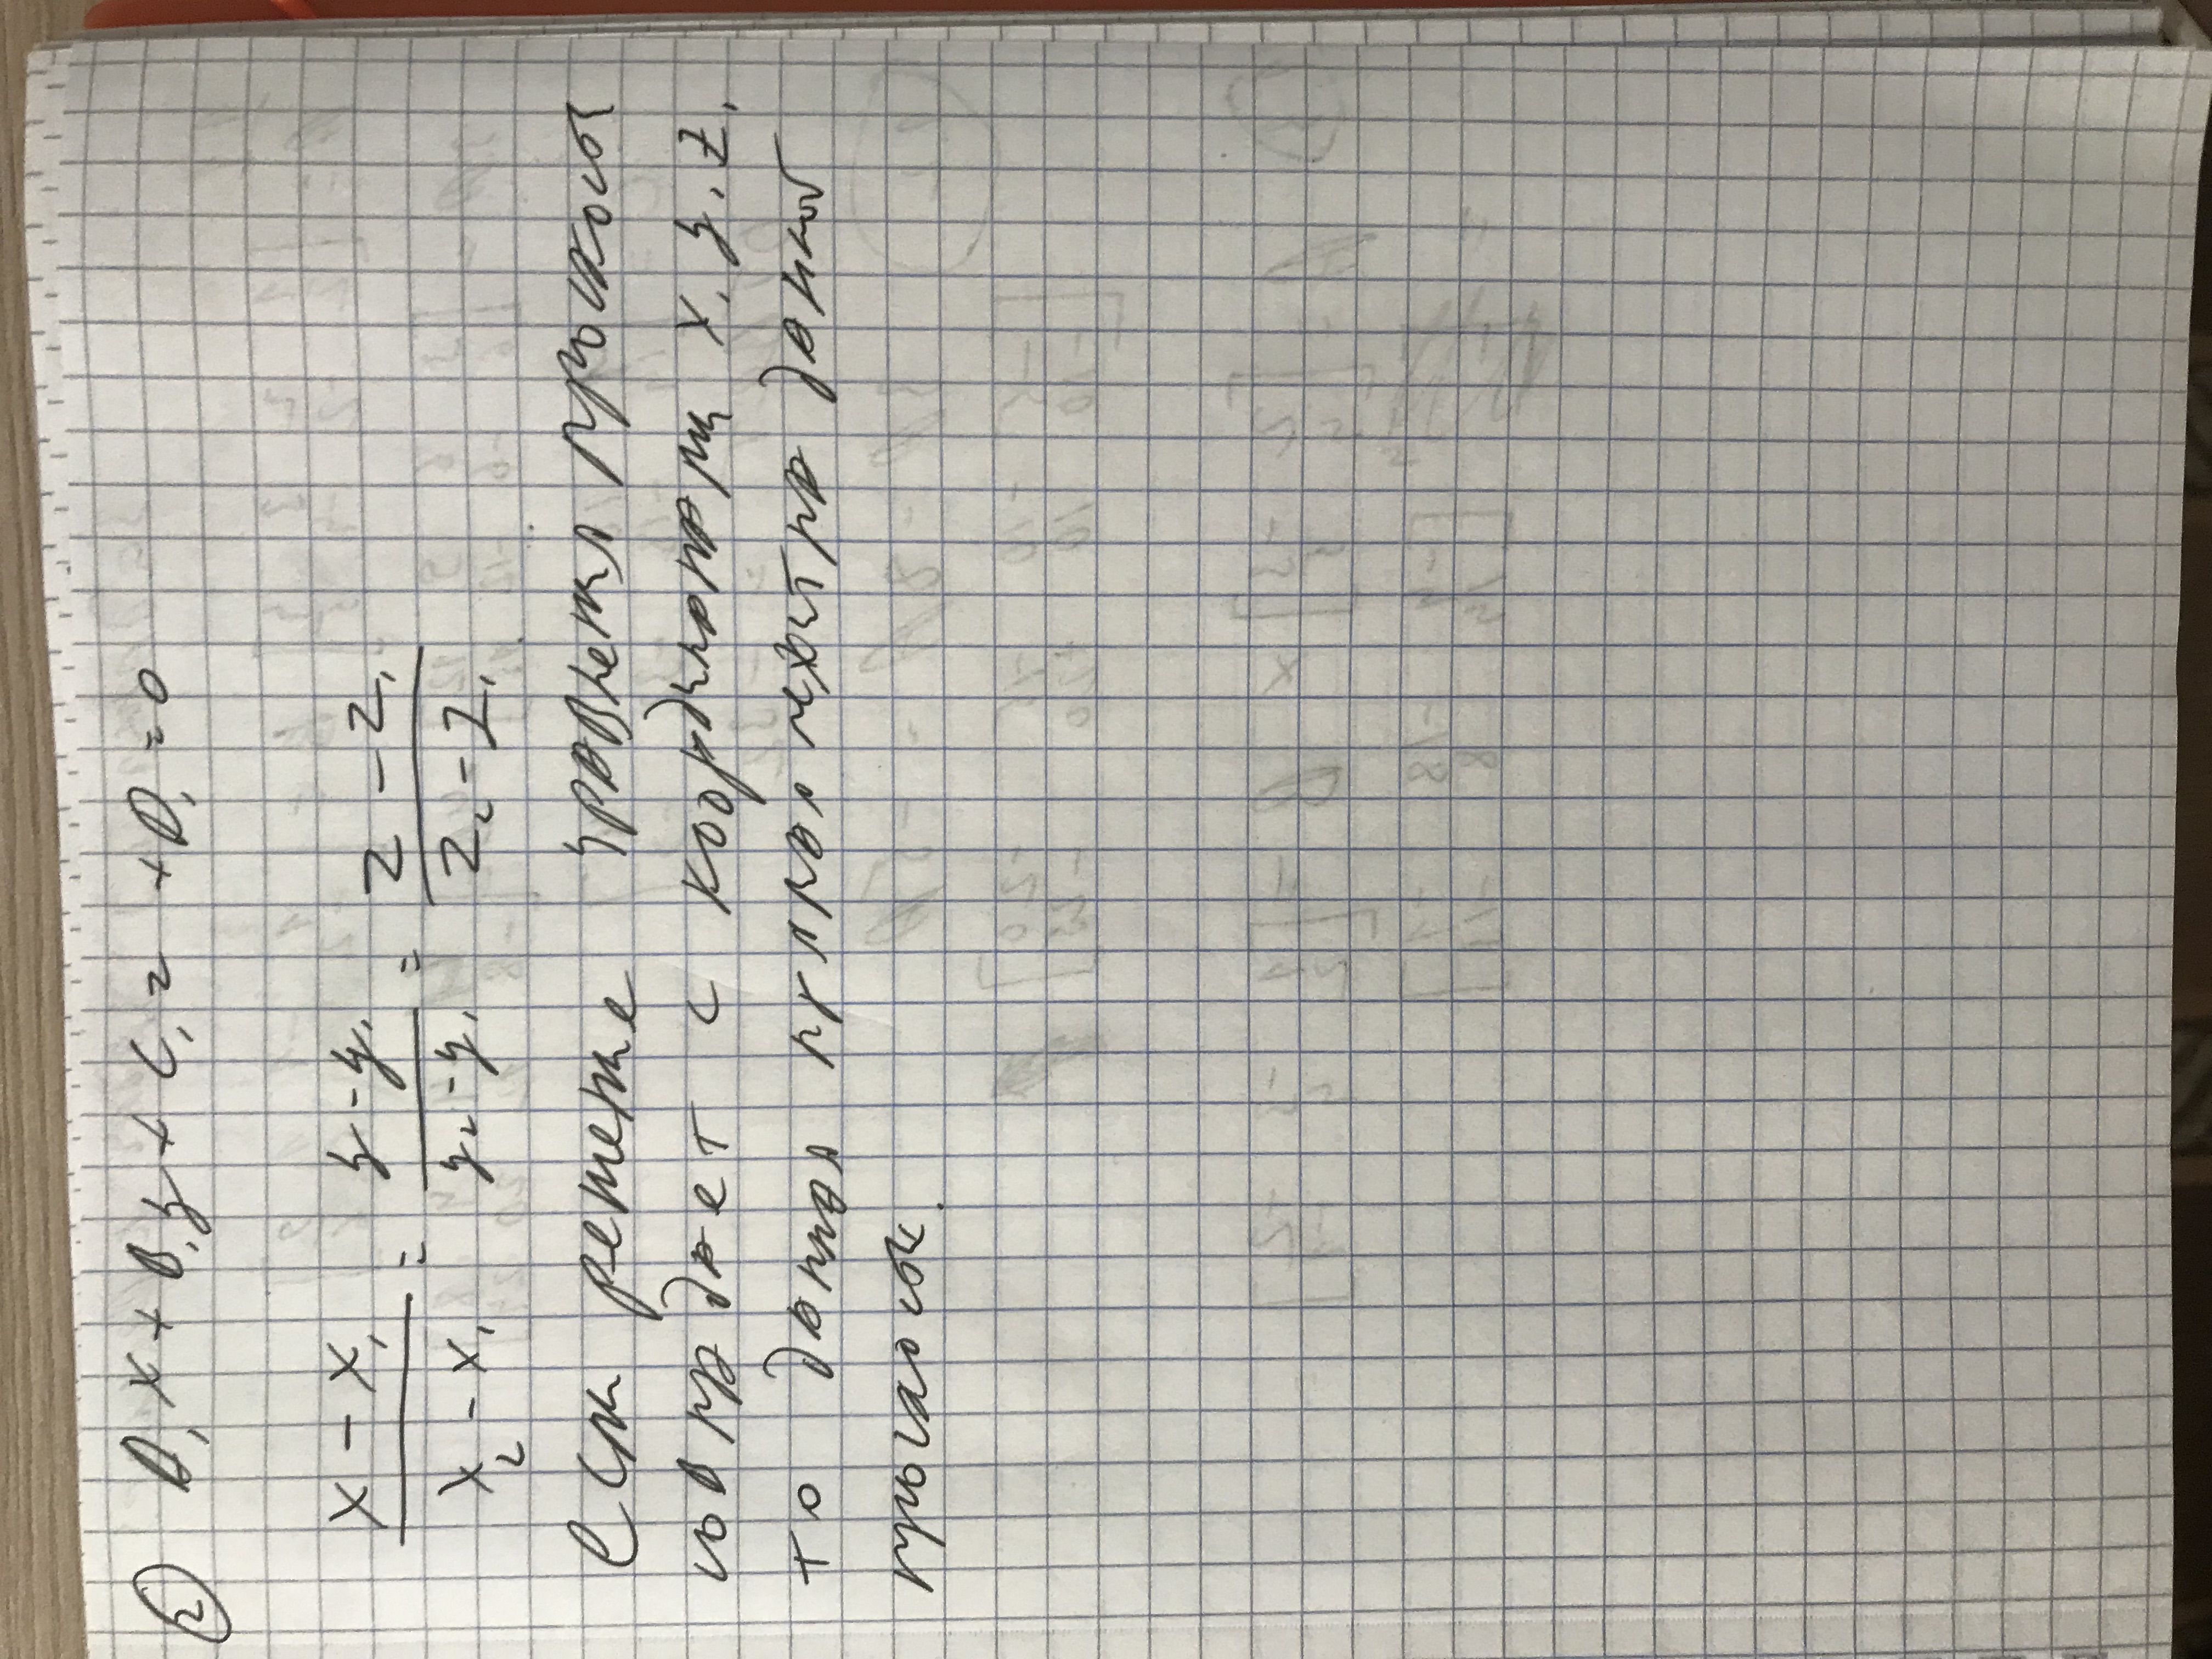 ② A₁x + B₁y + C₁z + D₁ = 0
(x - x₁)/(x₂ - x₁) = (y - y₁)/(y₂ - y₁) = (z - z₁)/(z₂ - z₁)
Если решение уравнения плоскости
совпадает с координатами x₁ y₁ z₁
то данная прямая лежит на данной
плоскости.